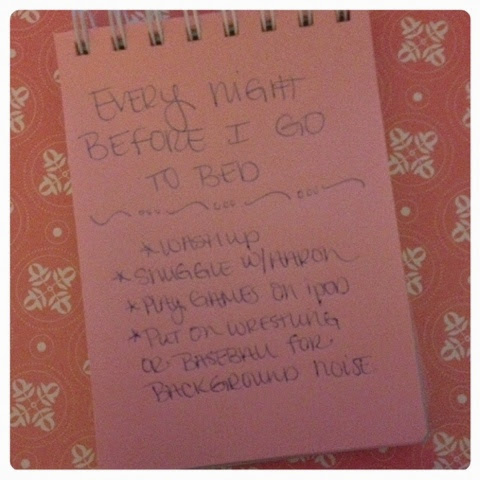 EVERY NIGHT
BEFORE I GO
TO BED
*WASH UP
*SNUGGLE W/AARON
*PLAY GAMES ON iPOD
*PUT ON WRESTLING
OR BASEBALL FOR
BACKGROUND NOISE